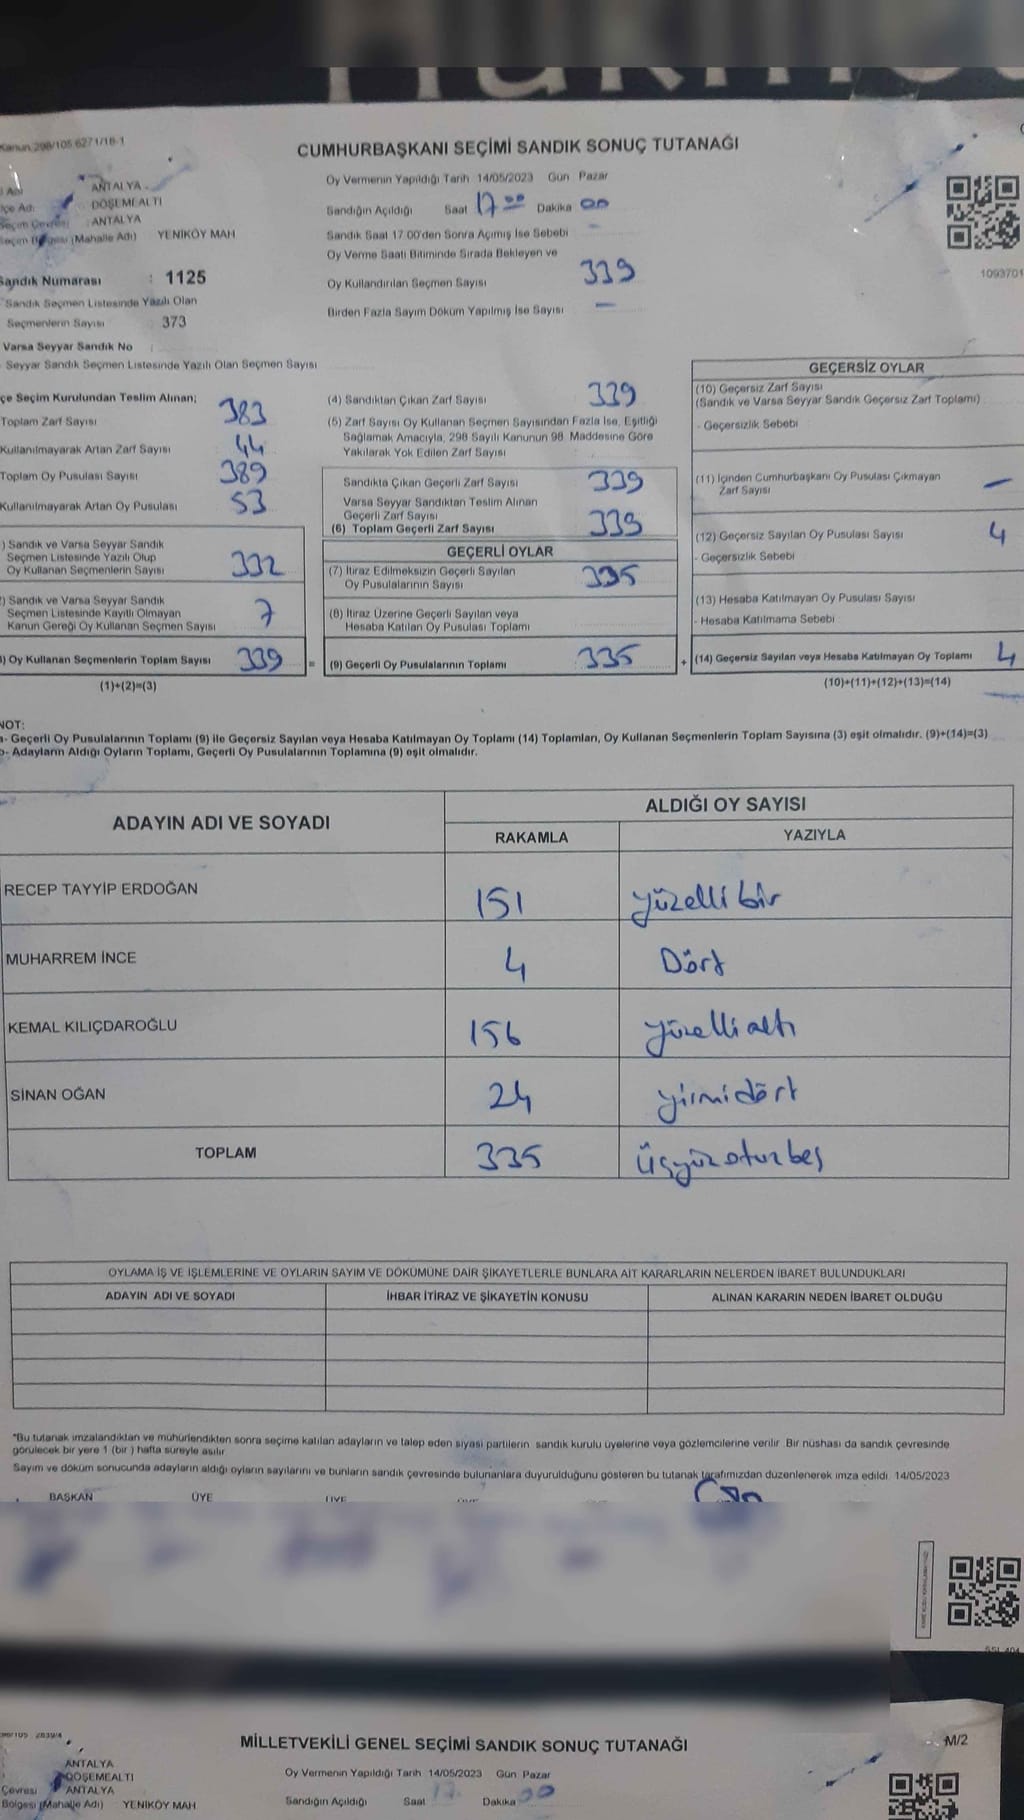 CUMHURBAŞKANI SEÇİMİ SANDIK SONUÇ TUTANAĞI
Kanun 298/105 6271/18-1
ANTALYA
İlçe Adı DÖŞEMEALTI
Seçim Çevresi ANTALYA
Seçim Bölgesi (Mahalle Adı) YENİKÖY MAH
Sandık Numarası : 1125
Sandık Seçmen Listesinde Yazılı Olan
Seçmenlerin Sayısı 373
Varsa Seyyar Sandık No :
Seyyar Sandık Seçmen Listesinde Yazılı Olan Seçmen Sayısı
Oy Vermenin Yapıldığı Tarih 14/05/2023 Gün Pazar
Sandığın Açıldığı Saat 17 00 Dakika 00
Sandık Saat 17 00'den Sonra Açımış İse Sebebi –
Oy Verme Saati Bitiminde Sırada Bekleyen ve
Oy Kullandırılan Seçmen Sayısı 339
Birden Fazla Sayım Döküm Yapılmış İse Sayısı –
1093701
İlçe Seçim Kurulundan Teslim Alınan;
Toplam Zarf Sayısı 383
Kullanılmayarak Artan Zarf Sayısı 44
Toplam Oy Pusulası Sayısı 389
Kullanılmayarak Artan Oy Pusulası 53
) Sandık ve Varsa Seyyar Sandık
Seçmen Listesinde Yazılı Olup
Oy Kullanan Seçmenlerin Sayısı 332
) Sandık ve Varsa Seyyar Sandık
Seçmen Listesinde Kayıtlı Olmayan
Kanun Gereği Oy Kullanan Seçmen Sayısı 7
) Oy Kullanan Seçmenlerin Toplam Sayısı 339 =
(1)+(2)=(3)
(4) Sandıktan Çıkan Zarf Sayısı 339
(5) Zarf Sayısı Oy Kullanan Seçmen Sayısından Fazla İse, Eşitliği
Sağlamak Amacıyla, 298 Sayılı Kanunun 98 Maddesine Göre
Yakılarak Yok Edilen Zarf Sayısı :
Sandıkta Çıkan Geçerli Zarf Sayısı 339
Varsa Seyyar Sandıktan Teslim Alınan
Geçerli Zarf Sayısı
(6) Toplam Geçerli Zarf Sayısı 339
GEÇERLİ OYLAR
(7) İtiraz Edilmeksizin Geçerli Sayılan
Oy Pusulalarının Sayısı 335
(8) İtiraz Üzerine Geçerli Sayılan veya
Hesaba Katılan Oy Pusulası Toplamı
(9) Geçerli Oy Pusulalarının Toplamı : 335 +
GEÇERSİZ OYLAR
(10) Geçersiz Zarf Sayısı
(Sandık ve Varsa Seyyar Sandık Geçersiz Zarf Toplamı)
- Geçersizlik Sebebi
(11) İçinden Cumhurbaşkanı Oy Pusulası Çıkmayan
Zarf Sayısı –
(12) Geçersiz Sayılan Oy Pusulası Sayısı 4
- Geçersizlik Sebebi
(13) Hesaba Katılmayan Oy Pusulası Sayısı
- Hesaba Katılmama Sebebi
(14) Geçersiz Sayılan veya Hesaba Katılmayan Oy Toplamı 4
(10)+(11)+(12)+(13)=(14)
NOT:
a- Geçerli Oy Pusulalarının Toplamı (9) ile Geçersiz Sayılan veya Hesaba Katılmayan Oy Toplamı (14) Toplamları, Oy Kullanan Seçmenlerin Toplam Sayısına (3) eşit olmalıdır. (9)+(14)=(3)
b- Adayların Aldığı Oyların Toplamı, Geçerli Oy Pusulalarının Toplamına (9) eşit olmalıdır.
ADAYIN ADI VE SOYADI ALDIĞI OY SAYISI
RAKAMLA YAZIYLA
RECEP TAYYİP ERDOĞAN 151 yüzelli bir
MUHARREM İNCE 4 Dört
KEMAL KILIÇDAROĞLU 156 yüzelli altı
SİNAN OĞAN 24 yirmidört
TOPLAM 335 üçyüzoturbeş
OYLAMA İŞ VE İŞLEMLERİNE VE OYLARIN SAYIM VE DÖKÜMÜNE DAİR ŞİKAYETLERLE BUNLARA AİT KARARLARIN NELERDEN İBARET BULUNDUKLARI
ADAYIN ADI VE SOYADI İHBAR İTİRAZ VE ŞİKAYETİN KONUSU ALINAN KARARIN NEDEN İBARET OLDUĞU
*Bu tutanak imzalandıktan ve mühürlendikten sonra seçime katılan adayların ve talep eden siyasi partilerin sandık kurulu üyelerine veya gözlemcilerine verilir Bir nüshası da sandık çevresinde
görülecek bir yere 1 (bir ) hafta süreyle asılır
Sayım ve döküm sonucunda adayların aldığı oyların sayılarını ve bunların sandık çevresinde bulunanlara duyurulduğunu gösteren bu tutanak tarafımızdan düzenlenerek imza edildi 14/05/2023
BAŞKAN ÜYE ÜYE
MİLLETVEKİLİ GENEL SEÇİMİ SANDIK SONUÇ TUTANAĞI
M/2
ANTALYA
DÖŞEMEALTI
Çevresi ANTALYA
Bölgesi (Mahalle Adı) YENİKÖY MAH
Oy Vermenin Yapıldığı Tarih 14/05/2023 Gün Pazar
Sandığın Açıldığı Saat 17 Dakika 00